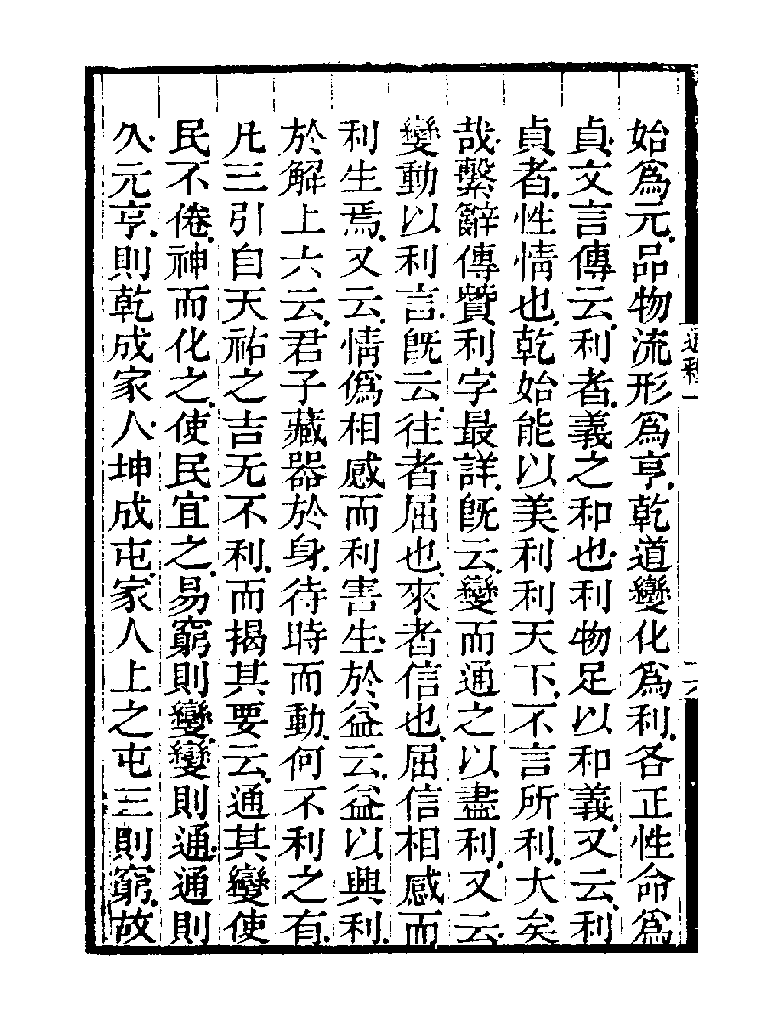 始為元品物流形為亨乾道變化為利各正性命為
貞文言傳云利者義之和也利物足以和義又云利
貞者性情也乾始能以美利利天下不言所利大矣
哉繫辭傳贊利字最詳旣云變而通之以盡利又云
變動以利言旣云往者屈也來者信也屈信相感而
利生焉又云情僞相感而利害生於益云益以興利
於解上六云君子藏器於身待時而動何不利之有
凡三引自天祐之吉无不利而揭其要云通其變使
民不倦神而化之使民宜之易窮則變變則通通則
久元亨則乾成家人坤成屯家人上之屯三則窮故